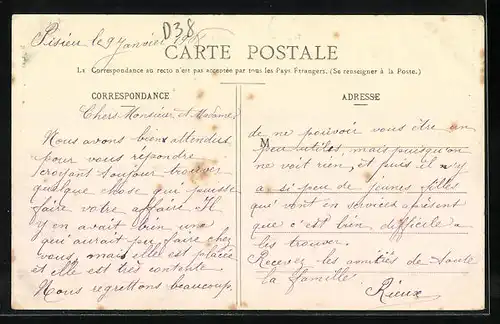 Pisieu le 9 janvier
D38
CARTE POSTALE
La Correspondance au recto n'est pas acceptée par tous les Pays Etrangers. (Se renseigner à la Poste.)
CORRESPONDANCE
Chers Monsieur et Madame.
Nous avons bien attendus
pour vous répondre,
croyant toujour trouver
quelque chose qui puisse
faire votre affaire. Il
y en avait bien une
qui aurait pu faire chez
vous, mais elle est placée
et elle est très contente
Nous regrettons beaucoup
ADRESSE
de ne pouvoir vous être un
M
peu utiles, mais puisqu'on
ne voit rien, et puis il n'y
a si peu de jeunes filles
qui vont en services a présent
que c'est bien difficile a
les trouver.
Recevez les amitiés de toute
la famille
Rieux